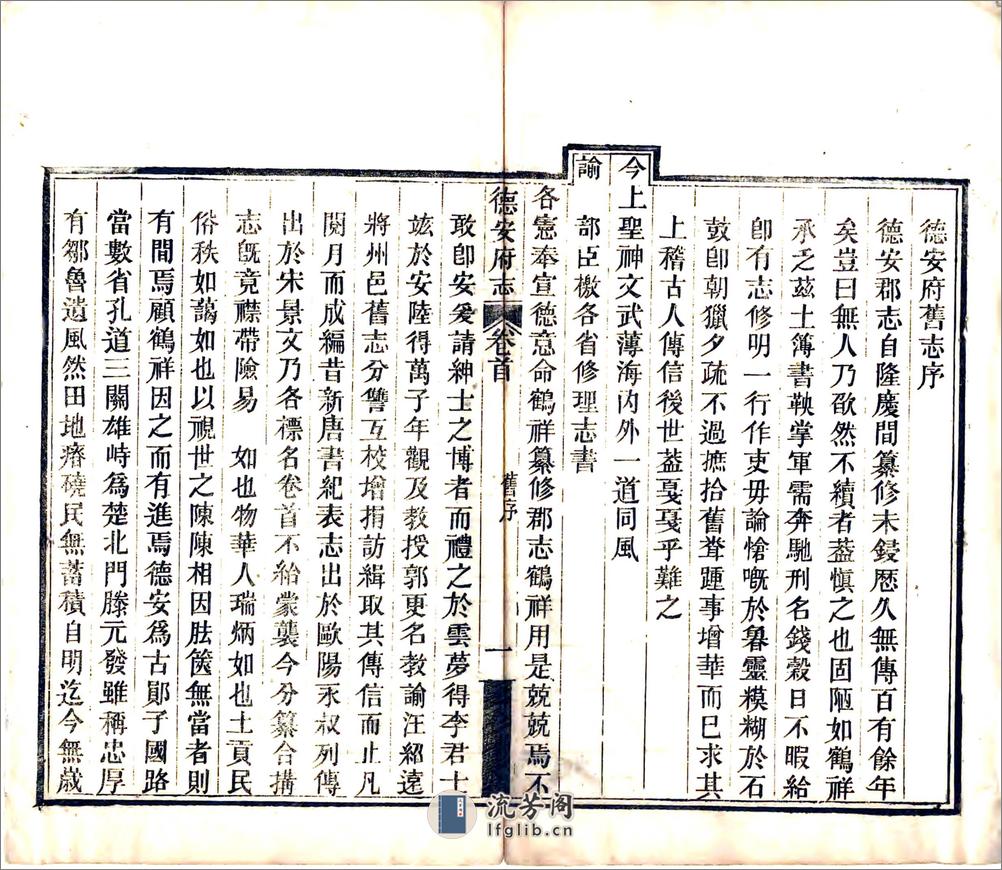 德安府舊志序
德安郡志自隆慶間纂修未鋟歷久無傳百有餘年
矣豈曰無人乃欿然不續者葢愼之也固陋如鶴祥
承乏茲土簿書鞅掌軍需奔馳刑名錢穀日不暇給
卽有志修明一行作吏毋論愴嘅於㬌靈糢糊於石
鼓卽朝獵夕疏不過摭拾舊聞踵事增華而已求其
上稽古人傳信後世葢戛戛乎難之
今上聖神文武薄海內外一道同風
諭部臣檄各省修理志書
各憲奉宣德意命鶴祥纂修郡志鶴祥用是兢兢焉不
德安府志
卷首
舊序
一
敢卽安爰請紳士之博者而禮之於雲夢得李君士
竑於安陸得萬子年觀及教授郭更名教諭汪紹遠
將州邑舊志分讐互校增捐訪緝取其傳信而止凡
閱月而成編昔新唐書紀表志出於歐陽永叔列傳
出於宋景文乃各標名卷首不給蒙襲今分纂合搆
志旣竟襟帶險易 如也物華人瑞炳如也土貢民
俗秩如藹如也以視世之陳陳相因胠篋無當者則
有間焉顧鶴祥因之而有進焉德安爲古鄖子國路
當數省孔道三關雄峙爲楚北門滕元發雖稱忠厚
有鄒魯遺風然田地瘠磽民無蓄積自明迄今無歲
流芳阁
lfglib.cn